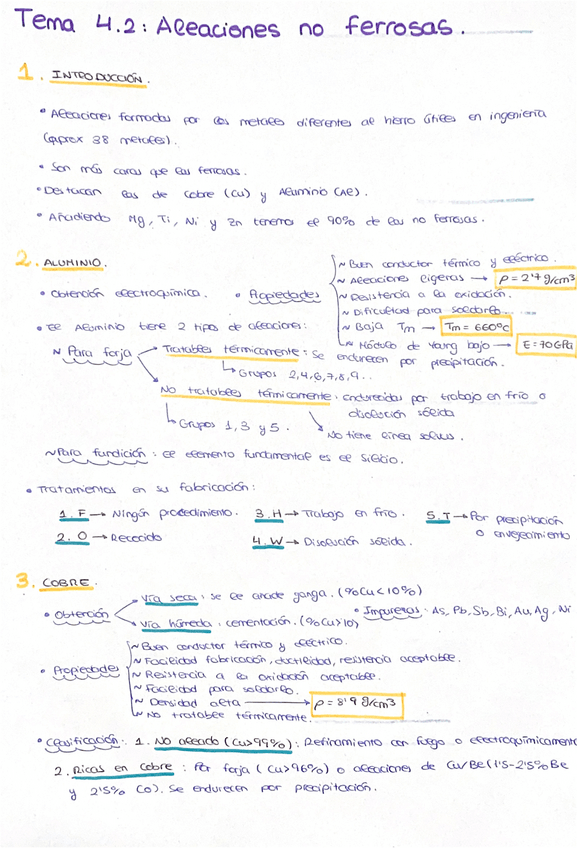 Tema 4.2: Aleaciones no ferrosas.
1. INTRODUCCIÓN.
• Aleaciones formadas por los metales diferentes al hierro útiles en ingeniería
(aprox 38 metales).
• Son más caras que las ferrosas.
• Destacan las de Cobre (Cu) y Aluminio (Al).
• Añadiendo Mg, Ti, Ni y Zn tenemos el 90% de las no ferrosas.
2. ALUMINIO.
• Obtención electroquímica.
• Propiedades
~ Buen conductor térmico y eléctrico.
~ Aleaciones ligeras → ρ = 2'7 g/cm³
~ Resistencia a la oxidación.
~ Dificultad para soldarlo.
~ Baja Tm → Tm = 660ºC
~ Módulo de Young bajo → E = 70 GPa
• El Aluminio tiene 2 tipos de aleaciones:
~ Para forja
Tratables térmicamente: Se endurecen por precipitación.
↳ Grupos 2,4,6,7,8,9..
No tratables térmicamente: endurecidas por trabajo en frío o
disolución sólida
↳ Grupos 1, 3 y 5.
↘ No tiene línea solvus.
~ Para fundición: el elemento fundamental es el Silicio.
• Tratamientos en su fabricación:
1. F → Ningún procedimiento. 3. H → Trabajo en frío. 5. T → Por precipitación
o envejecimiento
2. O → Recocido 4. W → Disolución sólida.
3. COBRE.
• Obtención
Vía seca: se le añade ganga. (%Cu<10%)
Vía húmeda: cementación. (%Cu>10)
• Impurezas: As, Pb, Sb, Bi, Au, Ag, Ni
• Propiedades
~ Buen conductor térmico y eléctrico.
~ Facilidad fabricación, ductilidad, resistencia aceptable.
~ Resistencia a la oxidación aceptable.
~ Facilidad para soldarlo.
~ Densidad alta → ρ = 8'9 g/cm³
~ No tratable térmicamente.
• Clasificación: 1. No aleado (Cu>99%): Refinamiento con fuego o electroquímicamente
2. Ricas en cobre: Por forja (Cu>96%) o aleaciones de Cu/Be (1'5-2'5% Be
y 2'5% Co). Se endurecen por precipitación.